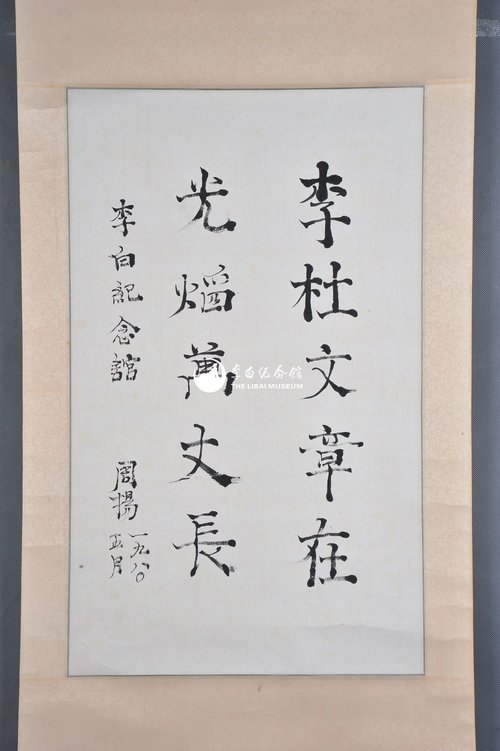 李杜文章在
光焰萬丈長
李白紀念館
周揚
一九八〇
五月
李白纪念馆
THE LIBAI MUSEUM